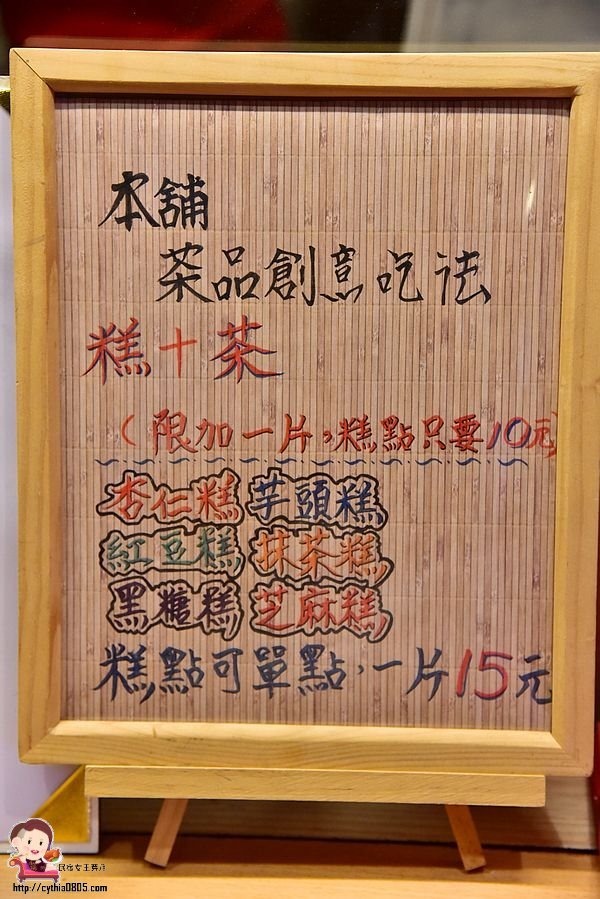 本舖
茶品創意吃法
糕+茶
(限加一片,糕點只要10元
杏仁糕 芋頭糕
紅豆糕 抹茶糕
黑糖糕 芝麻糕
糕點可單點,一片15元
民宿女王芽月
http://cythia0805.com